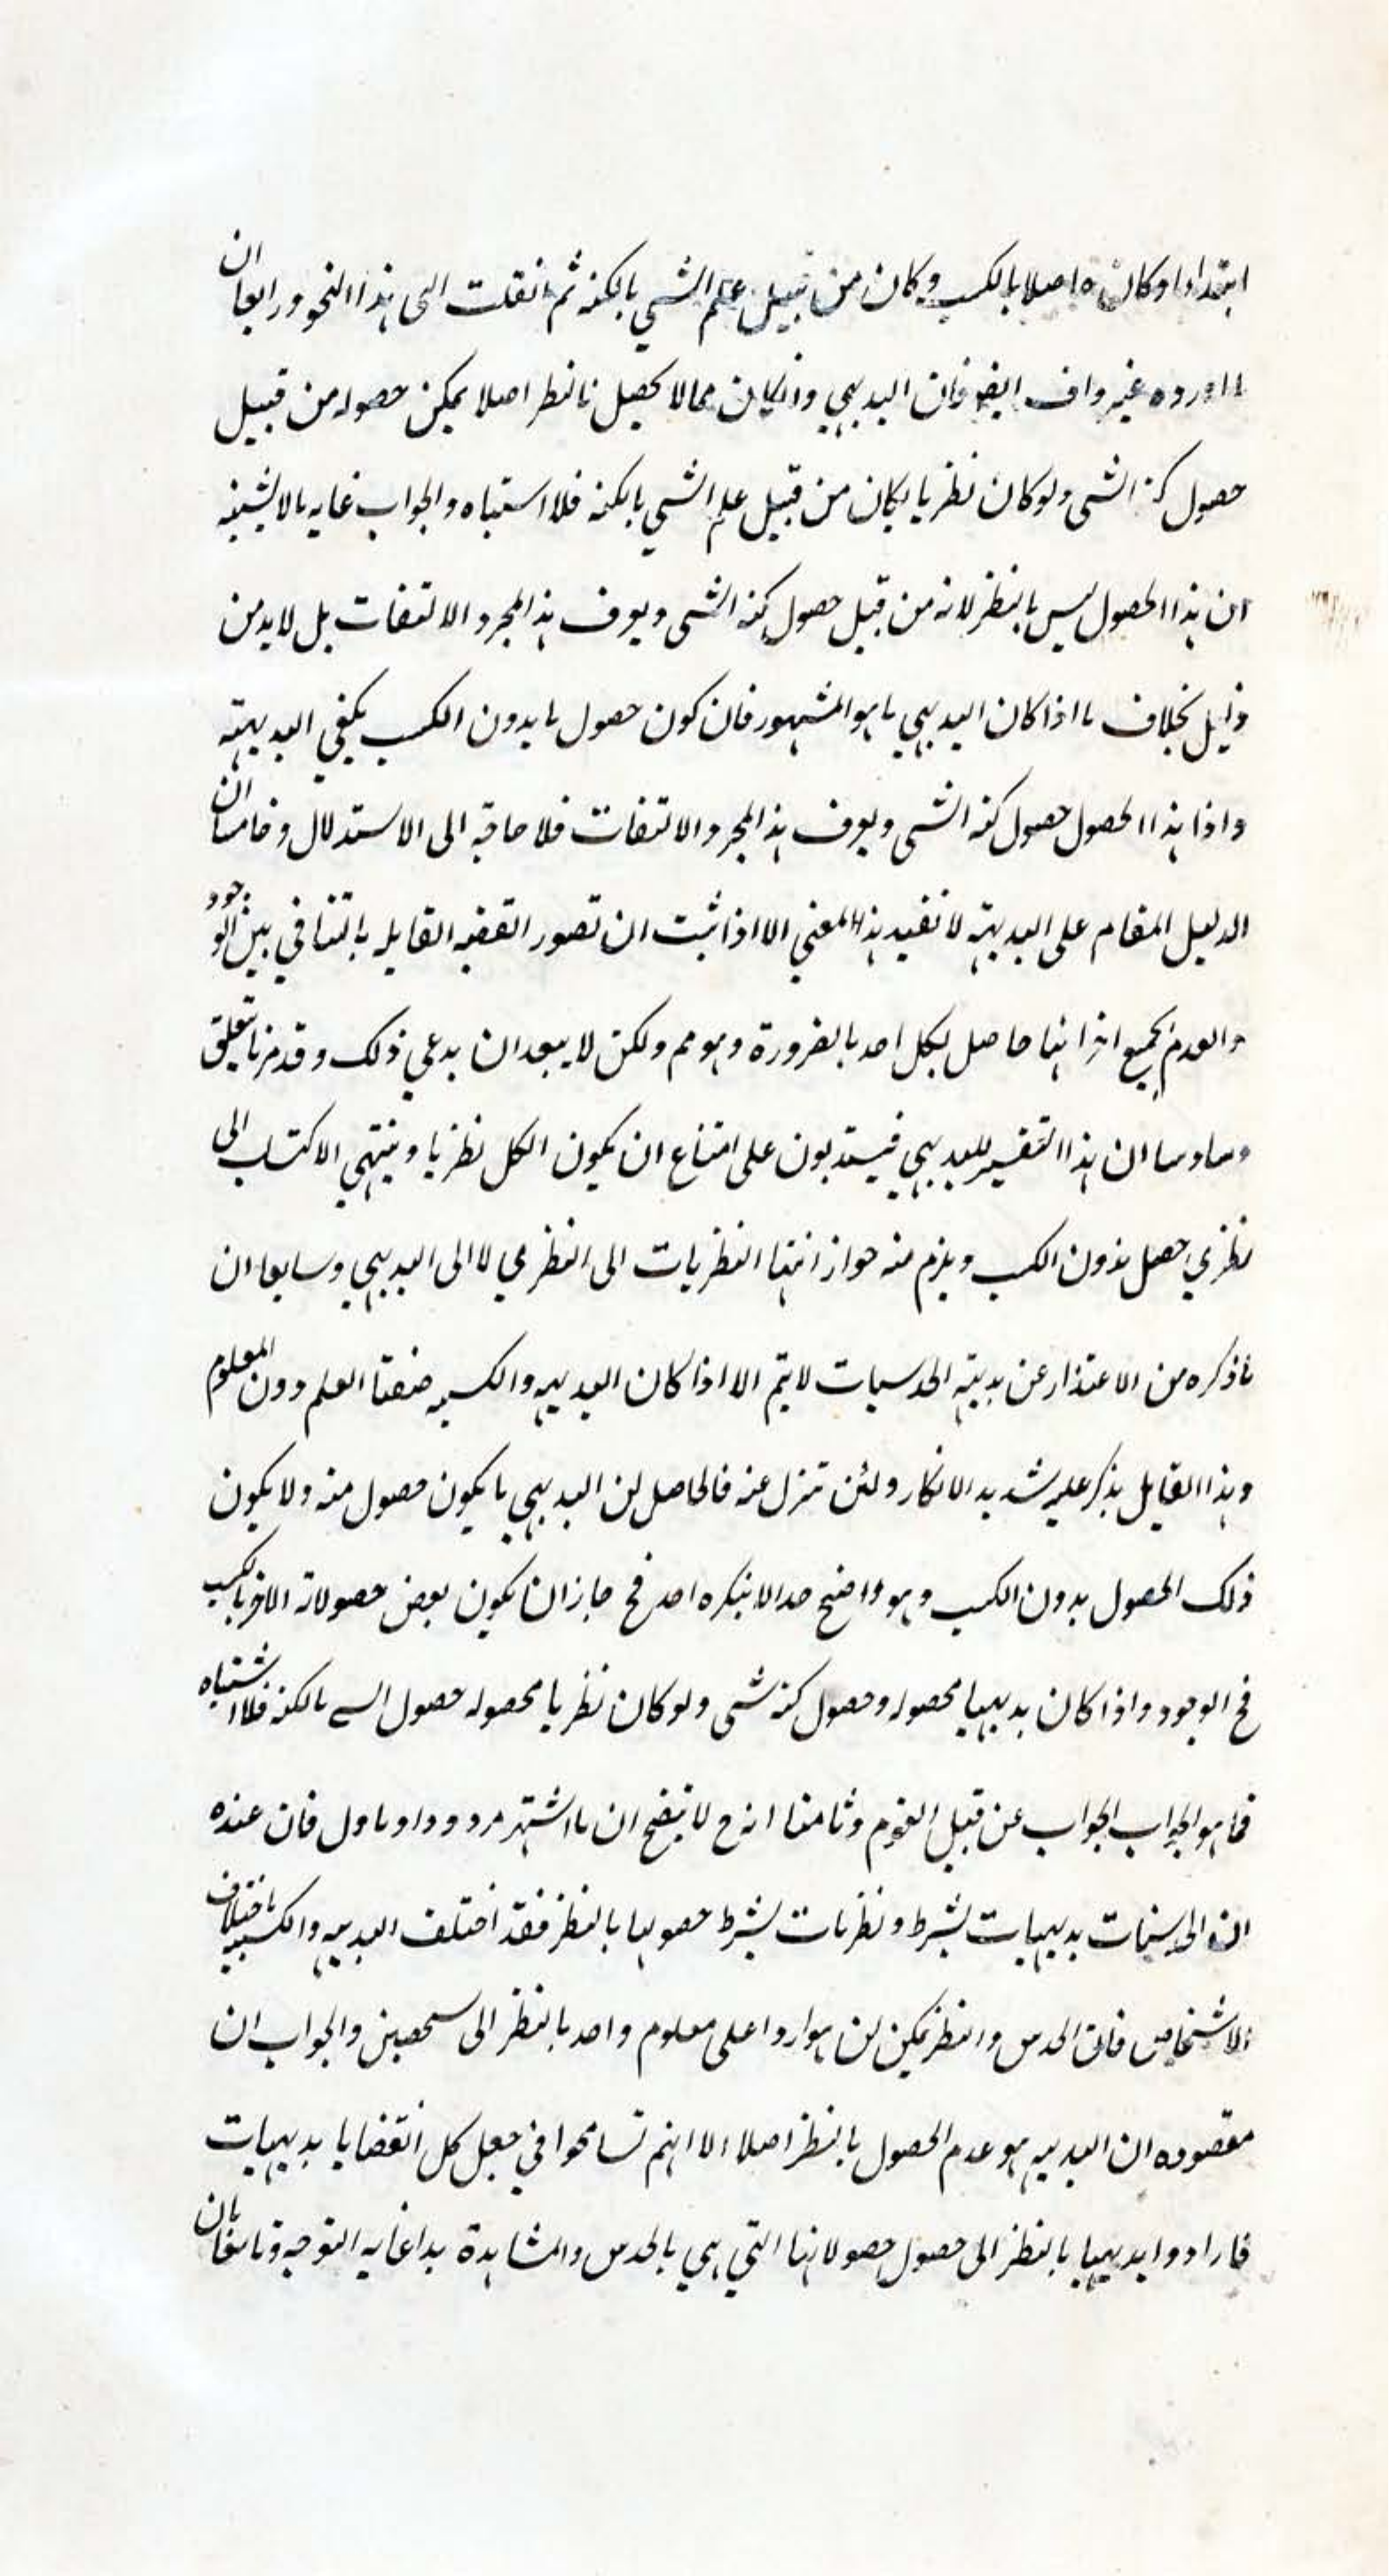 ابتداء او كان حاصلا بالكسب وكان من قبيل علم الشي بالكنه ثم انقلت الى هذا النحو ورابعا ان
ما اورده غير واف ايضا فان البديهي وان كان مما لا يحصل بالنظر اصلا يمكن حصوله من قبيل
حصول كنه الشي ولو كان نظريا لكان من قبيل علم الشي بالكنه فلا اشتباه والجواب غايه بالا يشبه
ان هذا الحصول ليس بالنظر لانه من قبيل حصول كنه الشي ويعرف هذا المجرد الالتفات بل لا بد من
دليل بخلاف ما اذا كان البديهي ما هو المشهور فان كون حصول ما بدون الكسب يكفي البديهته
واذا هذا الحصول حصول كنه الشي ويعرف هذا المجرد الالتفات فلا حاجة الى الاستدلال وخامسا ان
الدليل المقام على البديهته لا تفيد هذا المعني الا اذا ثبت ان تصور القضيه القايله بالتنافي بين الوجود
والعدم بجميع اجزائها حاصل لكل احد بالضرورة وهو مم ولكن لا يبعد ان يدعي ذلك وقد مر ما يتعلق
وسادسا ان هذا التفسير للبديهي فيستدلون على امتناع ان يكون الكل نظريا وينتهي الاكتساب الى
نظري حصل بدون الكسب ويلزم منه جواز انتها النظريات الى النظري لا الى البديهي وسابعا ان
ما ذكره من الاعتذار عن بديهته الحدسيات لا يتم الا اذا كان البديهيه والكسبيه صفتا العلم دون المعلوم
وهذا القايل يذكر عليه شديد الانكار ولئن تنزل عنه فالحاصل ان البديهي ما يكون حصول منه ولا يكون
ذلك الحصول بدون الكسب وهو واضح جدا لا ينكره احد فح جاز ان يكون بعض حصولاته الاخر بالكسب
فح الوجود واذا كان بديهيا محصوله وحصول كنه شي ولو كان نظريا محصوله حصول الشي بالكنه فلا اشتباه
فما هو الجواب الجواب عن قبيل القوم وثامنا انه ح لا يتضح ان ما اشتهر مردود او ماول فان عنده
ان الحدسيات بديهيات بشرط ونظريات بشرط حصولها بالنظر فقد اختلف البديهيه والكسبيه باختلاف
الاشخاص فان الحدس والنظر يمكن ان يتواردا على معلوم واحد بالنظر الى شخصين والجواب ان
مقصوده ان البديهيه هو عدم الحصول بالنظر اصلا الا انهم تسامحوا في جعل كل القضايا بديهيات
فارادوا بديهيا بالنظر الى حصول حصولاتها التي هي بالحدس والمشاهدة هذا غايه التوجيه وتاسعا بان